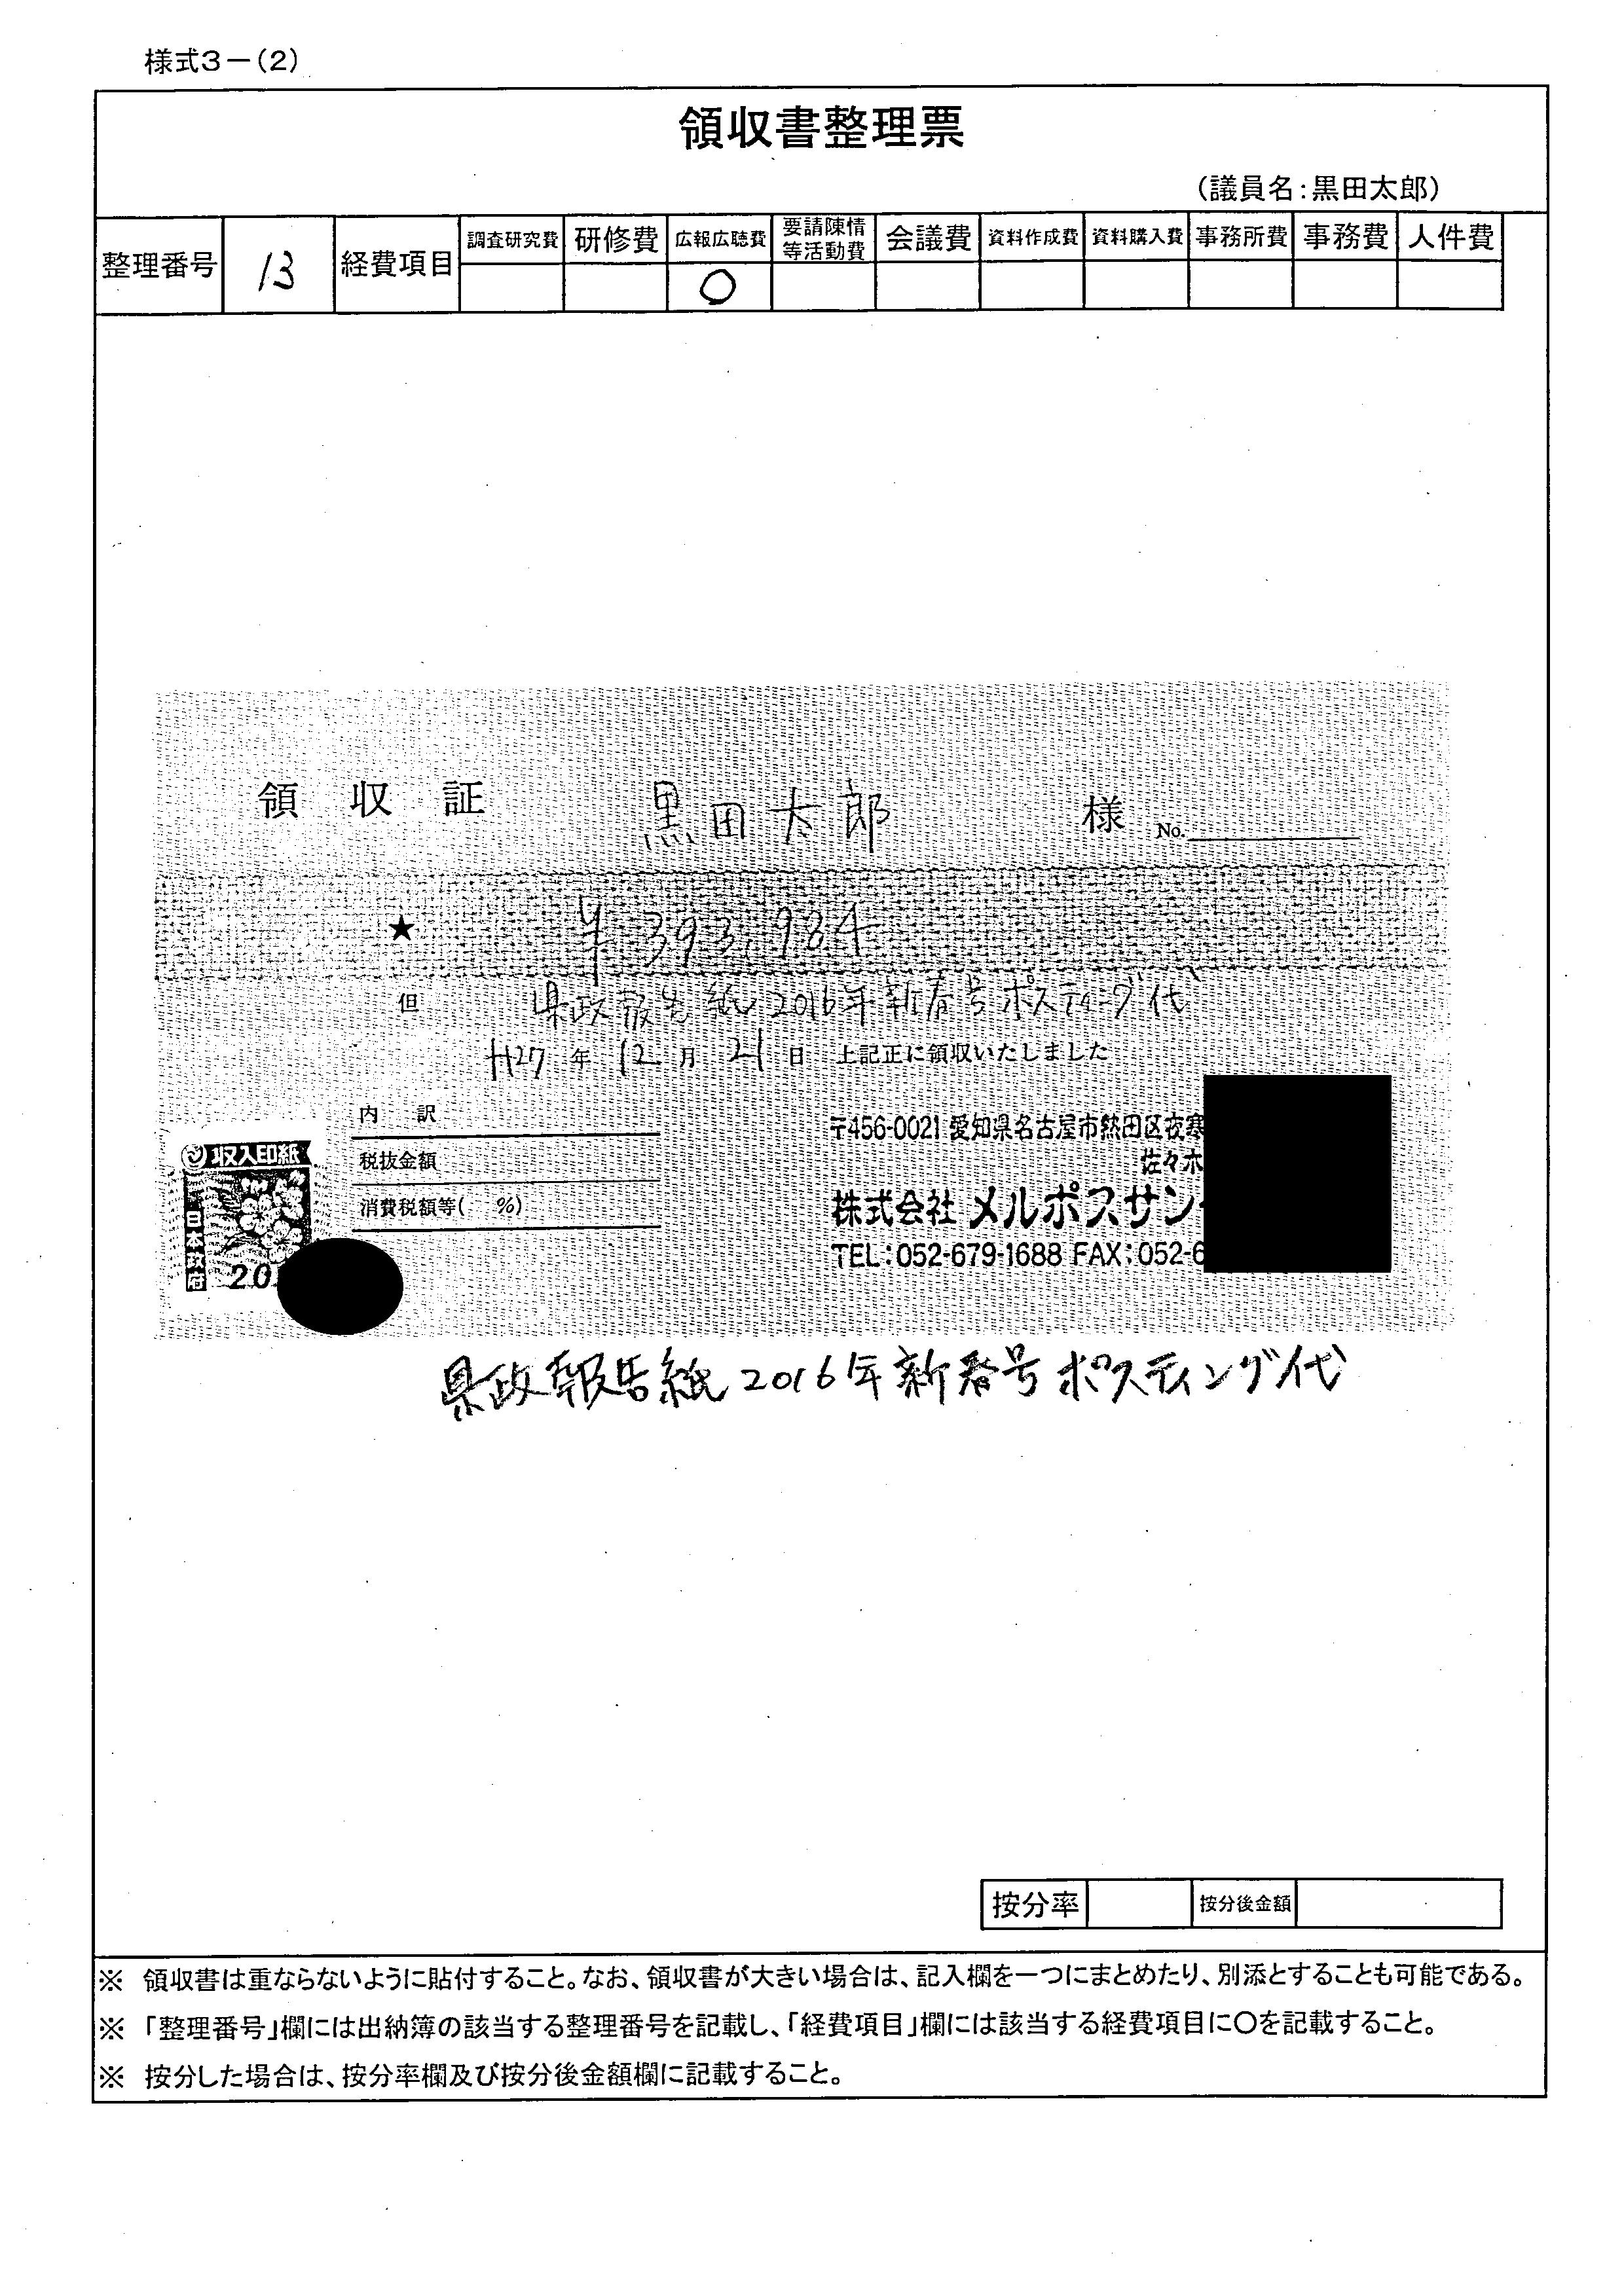 様式3-(2)
領収書整理票
(議員名:黒田太郎)
整理番号 13 経費項目 調査研究費 研修費 広報広聴費 要請陳情等活動費 会議費 資料作成費 資料購入費 事務所費 事務費 人件費
○
領収証 黒田太郎 様 No.
★ ¥393,984
但 県政報告紙2016年新春号ポスティング代
H27年12月21日 上記正に領収いたしました
内訳
税抜金額
消費税額等( %)
収入印紙
日本政府
20
〒456-0021 愛知県名古屋市熱田区夜寒
佐々木
株式会社 メルポスサン
TEL:052-679-1688 FAX:052-6
県政報告紙2016年新春号ポスティング代
按分率 按分後金額
※ 領収書は重ならないように貼付すること。なお、領収書が大きい場合は、記入欄を一つにまとめたり、別添とすることも可能である。
※ 「整理番号」欄には出納簿の該当する整理番号を記載し、「経費項目」欄には該当する経費項目に○を記載すること。
※ 按分した場合は、按分率欄及び按分後金額欄に記載すること。